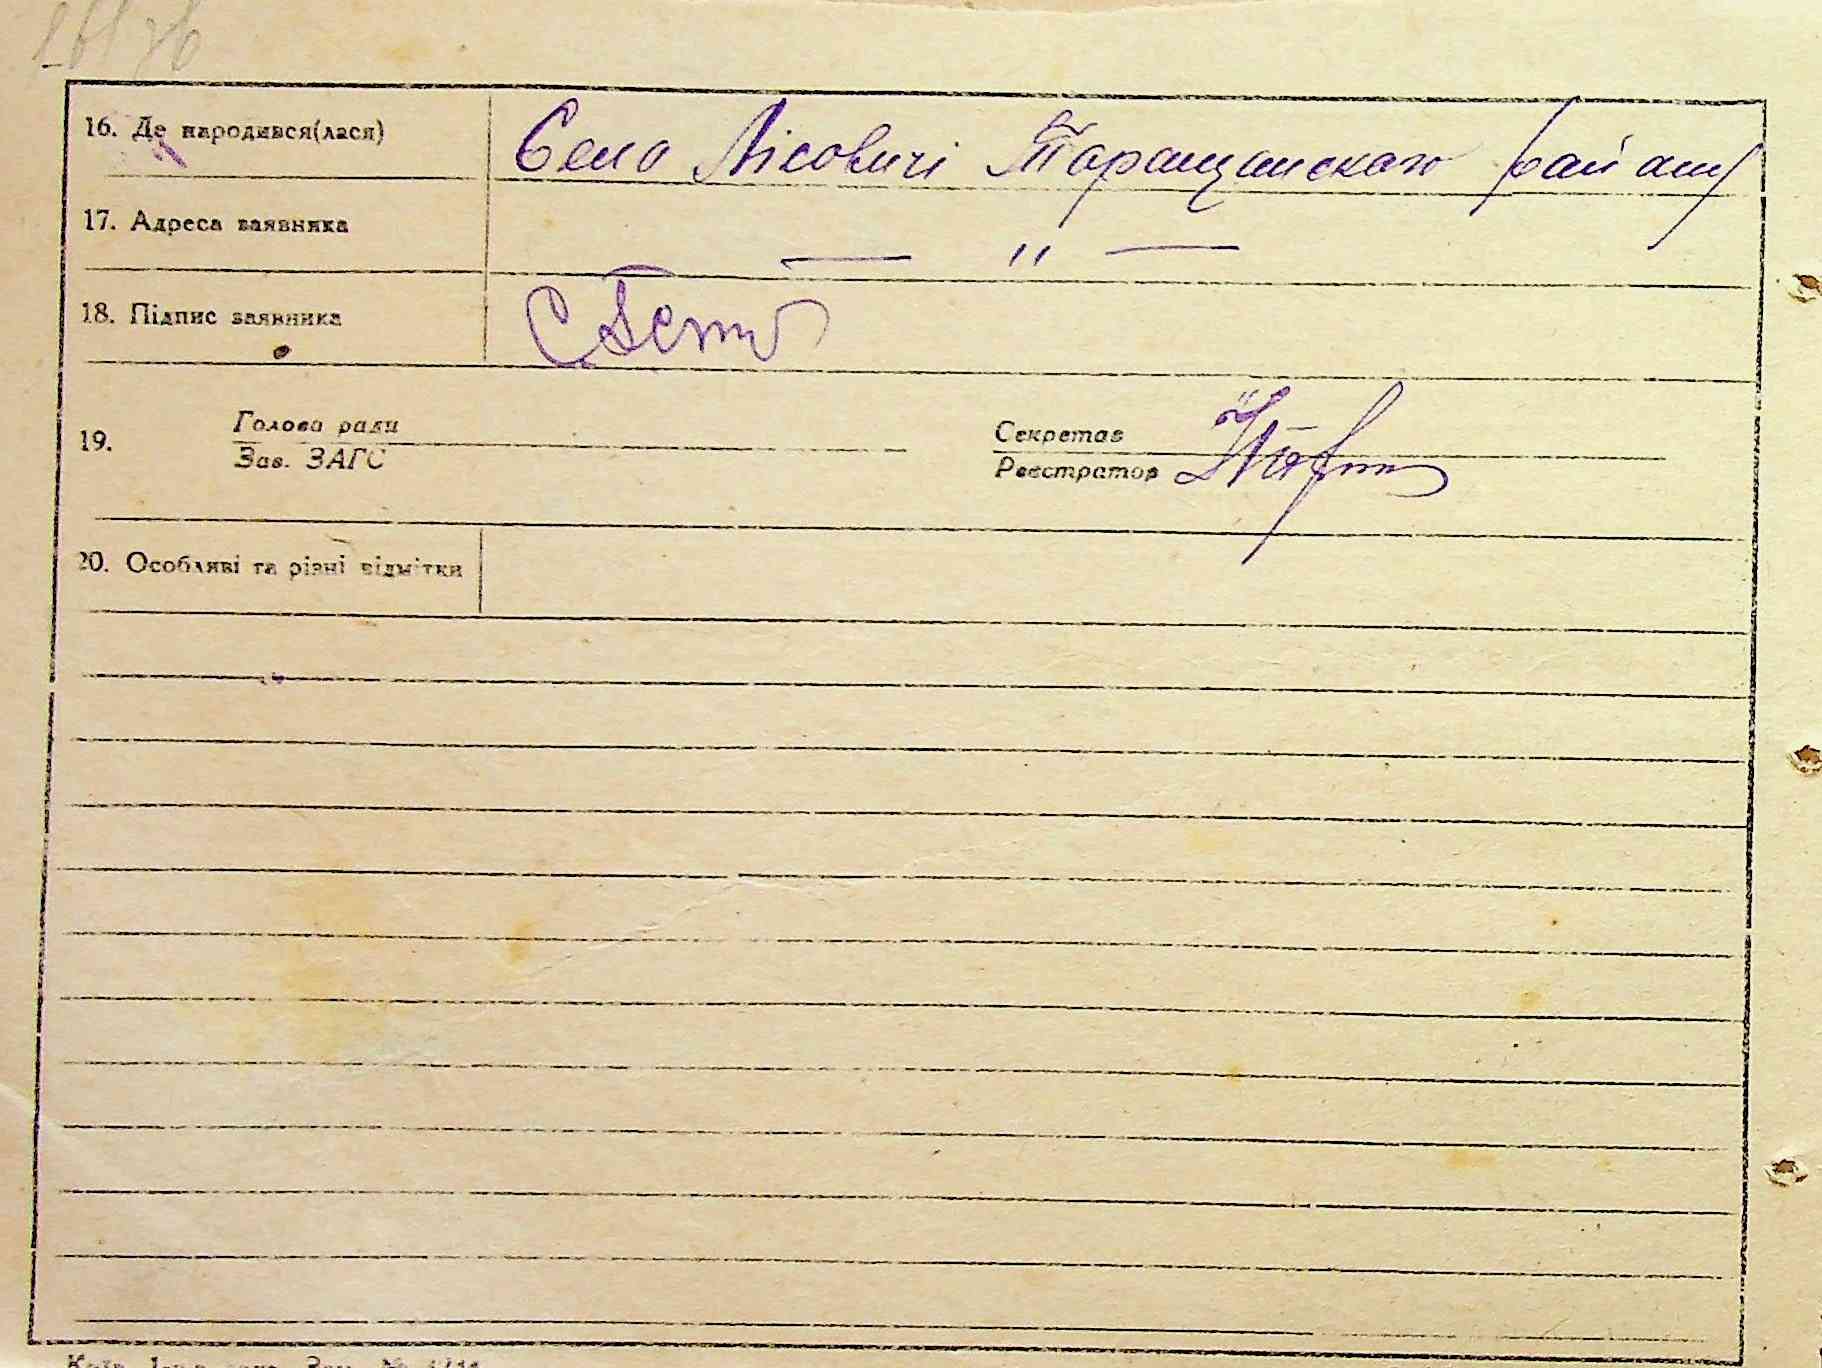 16. Де народився(лася)
Село Лісовичі Таращанского району
17. Адреса заявника
— " —
18. Підпис заявника
19.
Голова ради
Зав. ЗАГС
Секретар
Реєстратор
20. Особливі та різні відмітки